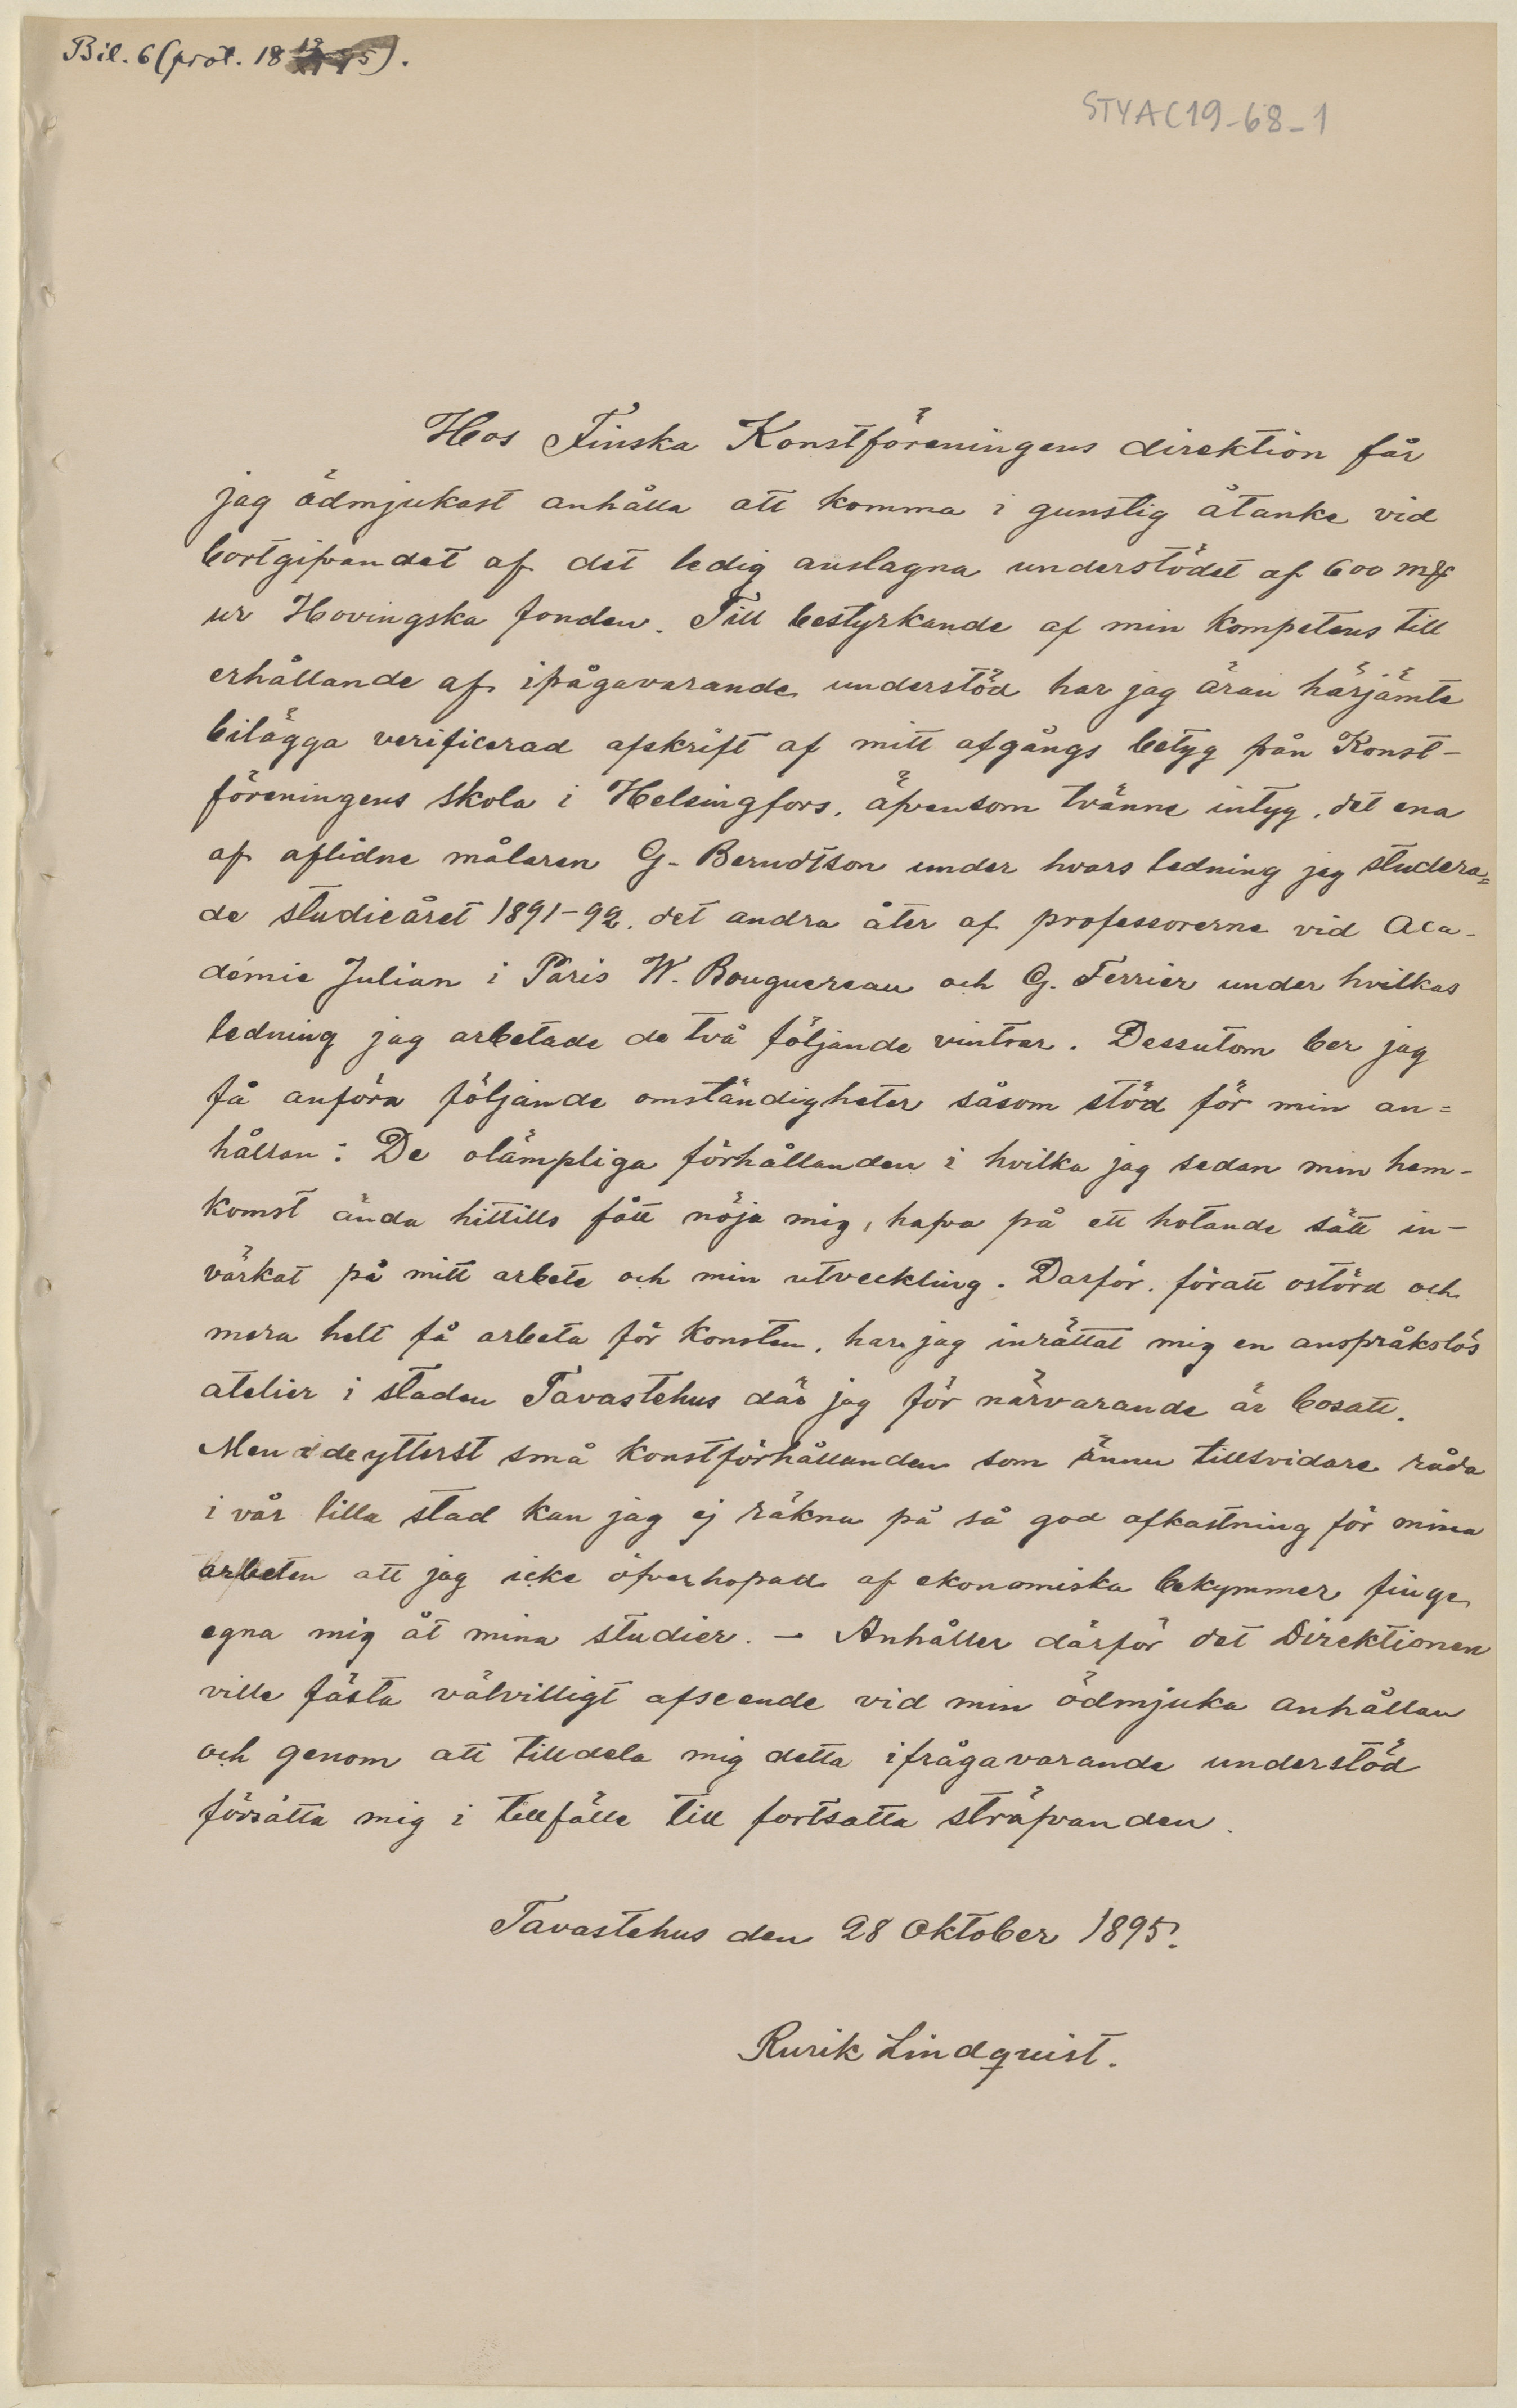 Bil. 6 (prot. 18 95).
STYA C19-68-1
Hos Finska Konstföreningens direktion får
jag ödmjukast anhålla att komma i gunstig åtanke vid
bortgifvandet af det ledig anslagna understödet af 600 mk
ur Hovingska fonden. Till bestyrkande af min kompetens till
erhållande af ipågavarande understöd har jag äran härjämte
bilägga verificerad afskrift af mitt afgångs betyg från Konst-
föreningens skola i Helsingfors, äfvensom tvänne intyg, det ena
af aflidne målaren G. Berndtson under hvars ledning jag studera=
de studieåret 1891-92, det andra åter af professorerne vid Aca-
démie Julian i Paris W. Bouguereau och G. Ferrier under hvilkas
ledning jag arbetade de två följande vintrar. Dessutom ber jag
få anföra följande omständigheter såsom stöd för min an=
hållan: De olämpliga förhållanden i hvilka jag sedan min hem-
komst ända hittills fått nöja mig, hafva på ett hotande sätt in-
värkat på mitt arbete och min utveckling. Därför, föratt ostörd och
mera helt få arbeta för konsten, har jag inrättat mig en anspråkslös
atelier i staden Tavastehus där jag för närvarande är bosatt.
Men de ytterst små konstförhållanden som ännu tillsvidare råda
i vår lilla stad kan jag ej räkna på så god afkastning för mina
arbeten att jag icke öfverhopad af ekonomiska bekymmer finge
egna mig åt mina studier. - Anhåller därför det Direktionen
ville fästa välvilligt afseende vid min ödmjuka anhållan
och genom att tilldela mig detta ifrågavarande understöd
försätta mig i tillfälle till fortsatta sträfvanden.
Tavastehus den 28 Oktober 1895.
Rurik Lindquist.